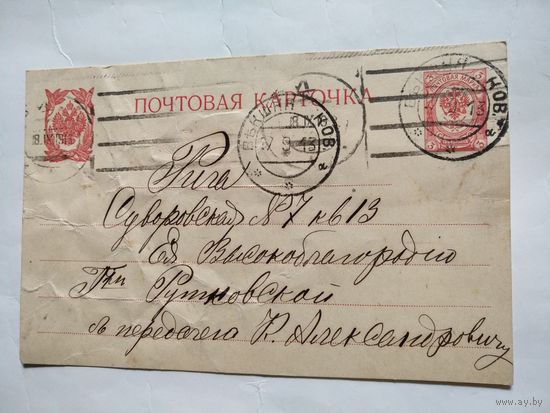 ПОЧТОВАЯ КАРТОЧКА
Рига
Суворовская N 7 кв 13
Ея Высокоблагородiю
Гжи Рутковской
передачею К. Александровичу
www.ay.by